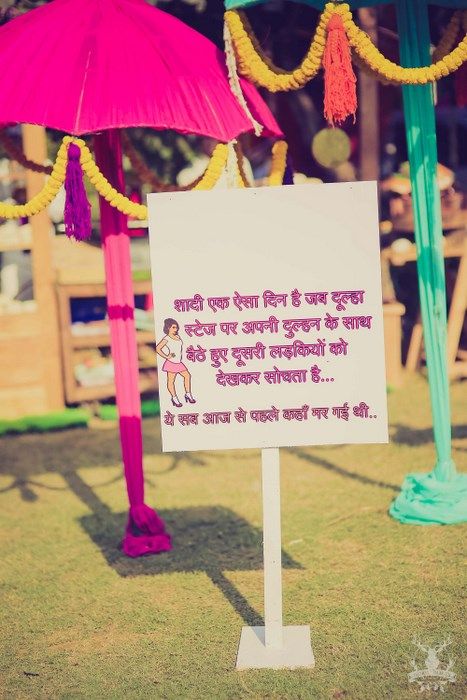 शादी एक ऐसा दिन है जब दूल्हा
स्टेज पर अपनी दुल्हन के साथ
बैठे हुए दूसरी लड़कियों को
देखकर सोचता है...
ये सब आज से पहले कहाँ मर गई थी..